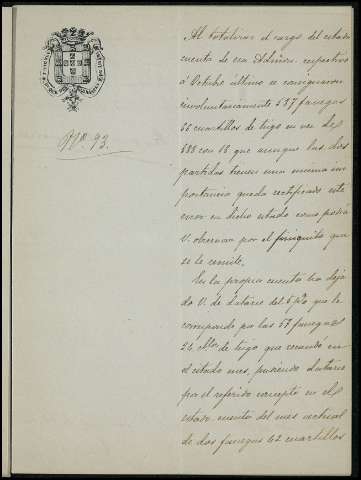 Nº 93.
Al totalizar el cargo del estado
cuenta de esa Admon. respectivo
á Octubre último se consignaron
involuntariamente 537 fanegas
66 cuartillos de trigo en vez de
588 con 66 que aunque las dos
partidas tienen una misma im
portancia queda rectificado este
error en dicho estado como podrá
V. observar por el finiquito que
se le remite.
En la propia cuenta ha deja
do V. de datarse del 6 p% que le
corresponde por las 57 fanegas
24 cllos. de trigo que recaudó en
el citado mes, pudiendo datarse
por el referido concepto en el
estado cuenta del mes actual
de dos fanegas 62 cuartillos